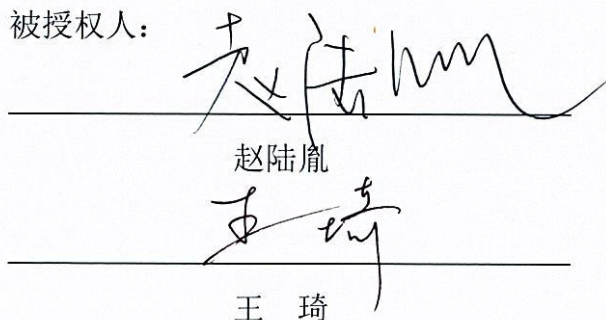 被授权人：
赵陆胤
赵陆胤
王琦
王 琦